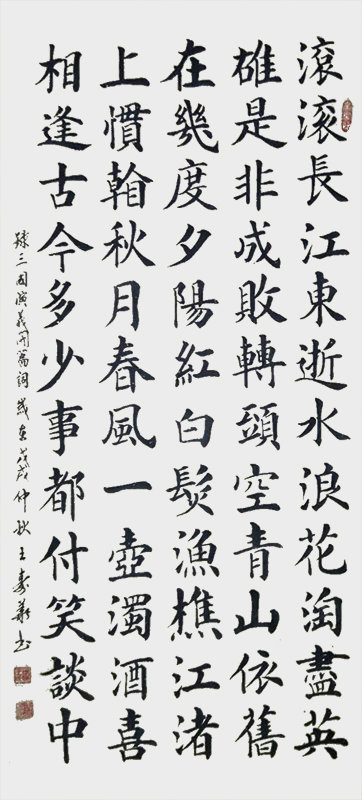 滚滚長江東逝水浪花淘盡英
雄是非成敗轉頭空青山依舊
在幾度夕陽紅白髮漁樵江渚
上慣翰秋月春風一壺濁酒喜
相逢古今多少事都付笑談中
錄三国演義開篇詞歲在戊戌仲秋王壽書